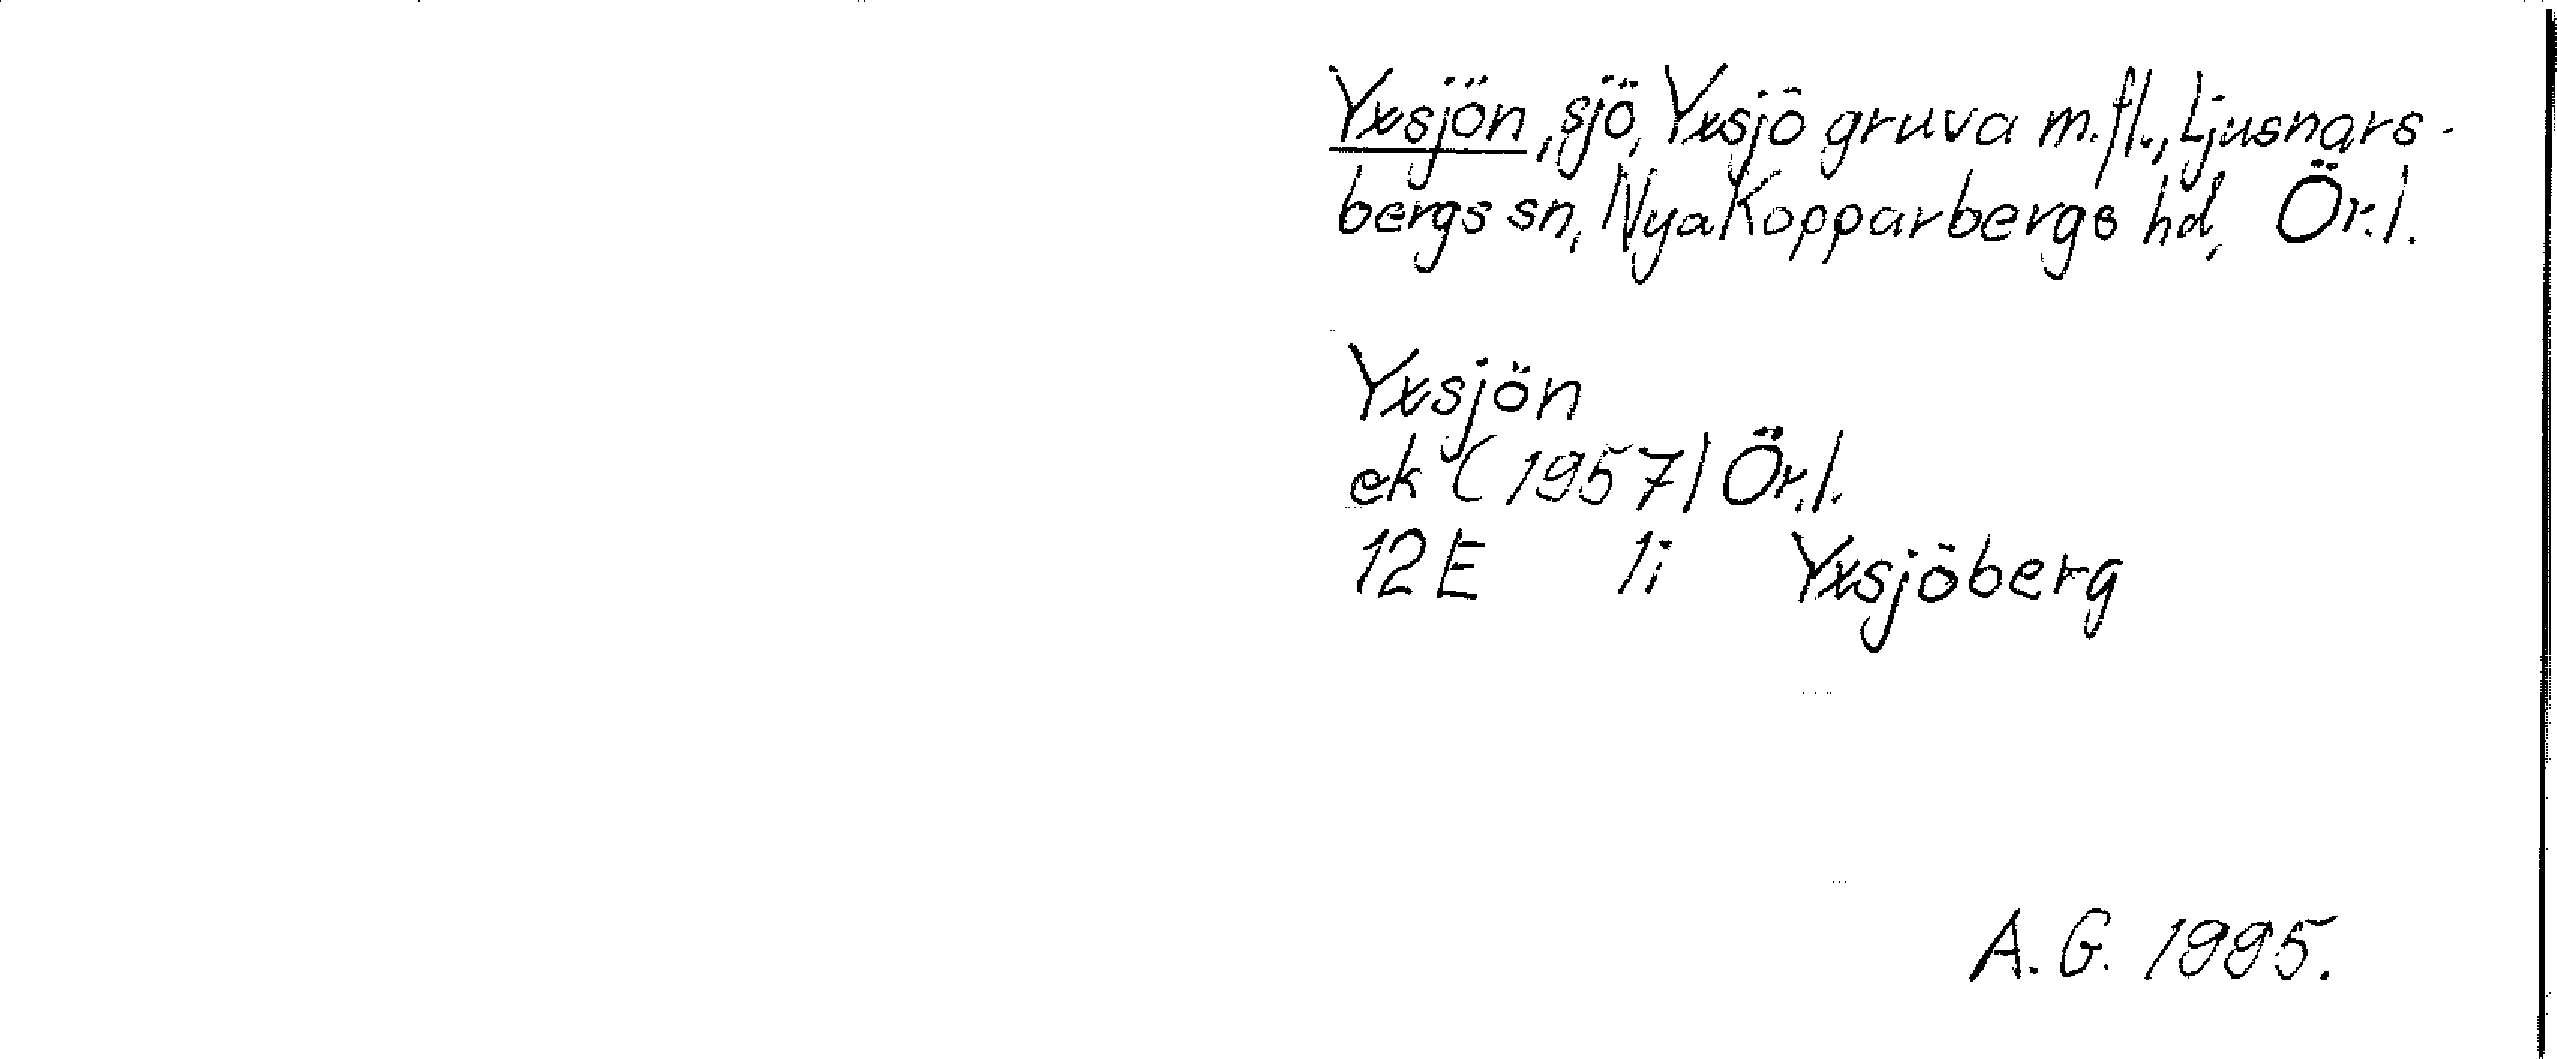 Yxsjön, sjö, Yxsjö gruva m.fl., Ljusnars-
bergs sn, Nya Kopparbergs hd, Ör.l.
Yxsjön
ek (1957) Ör.l.
12E 1i Yxsjöberg
A.G. 1995.